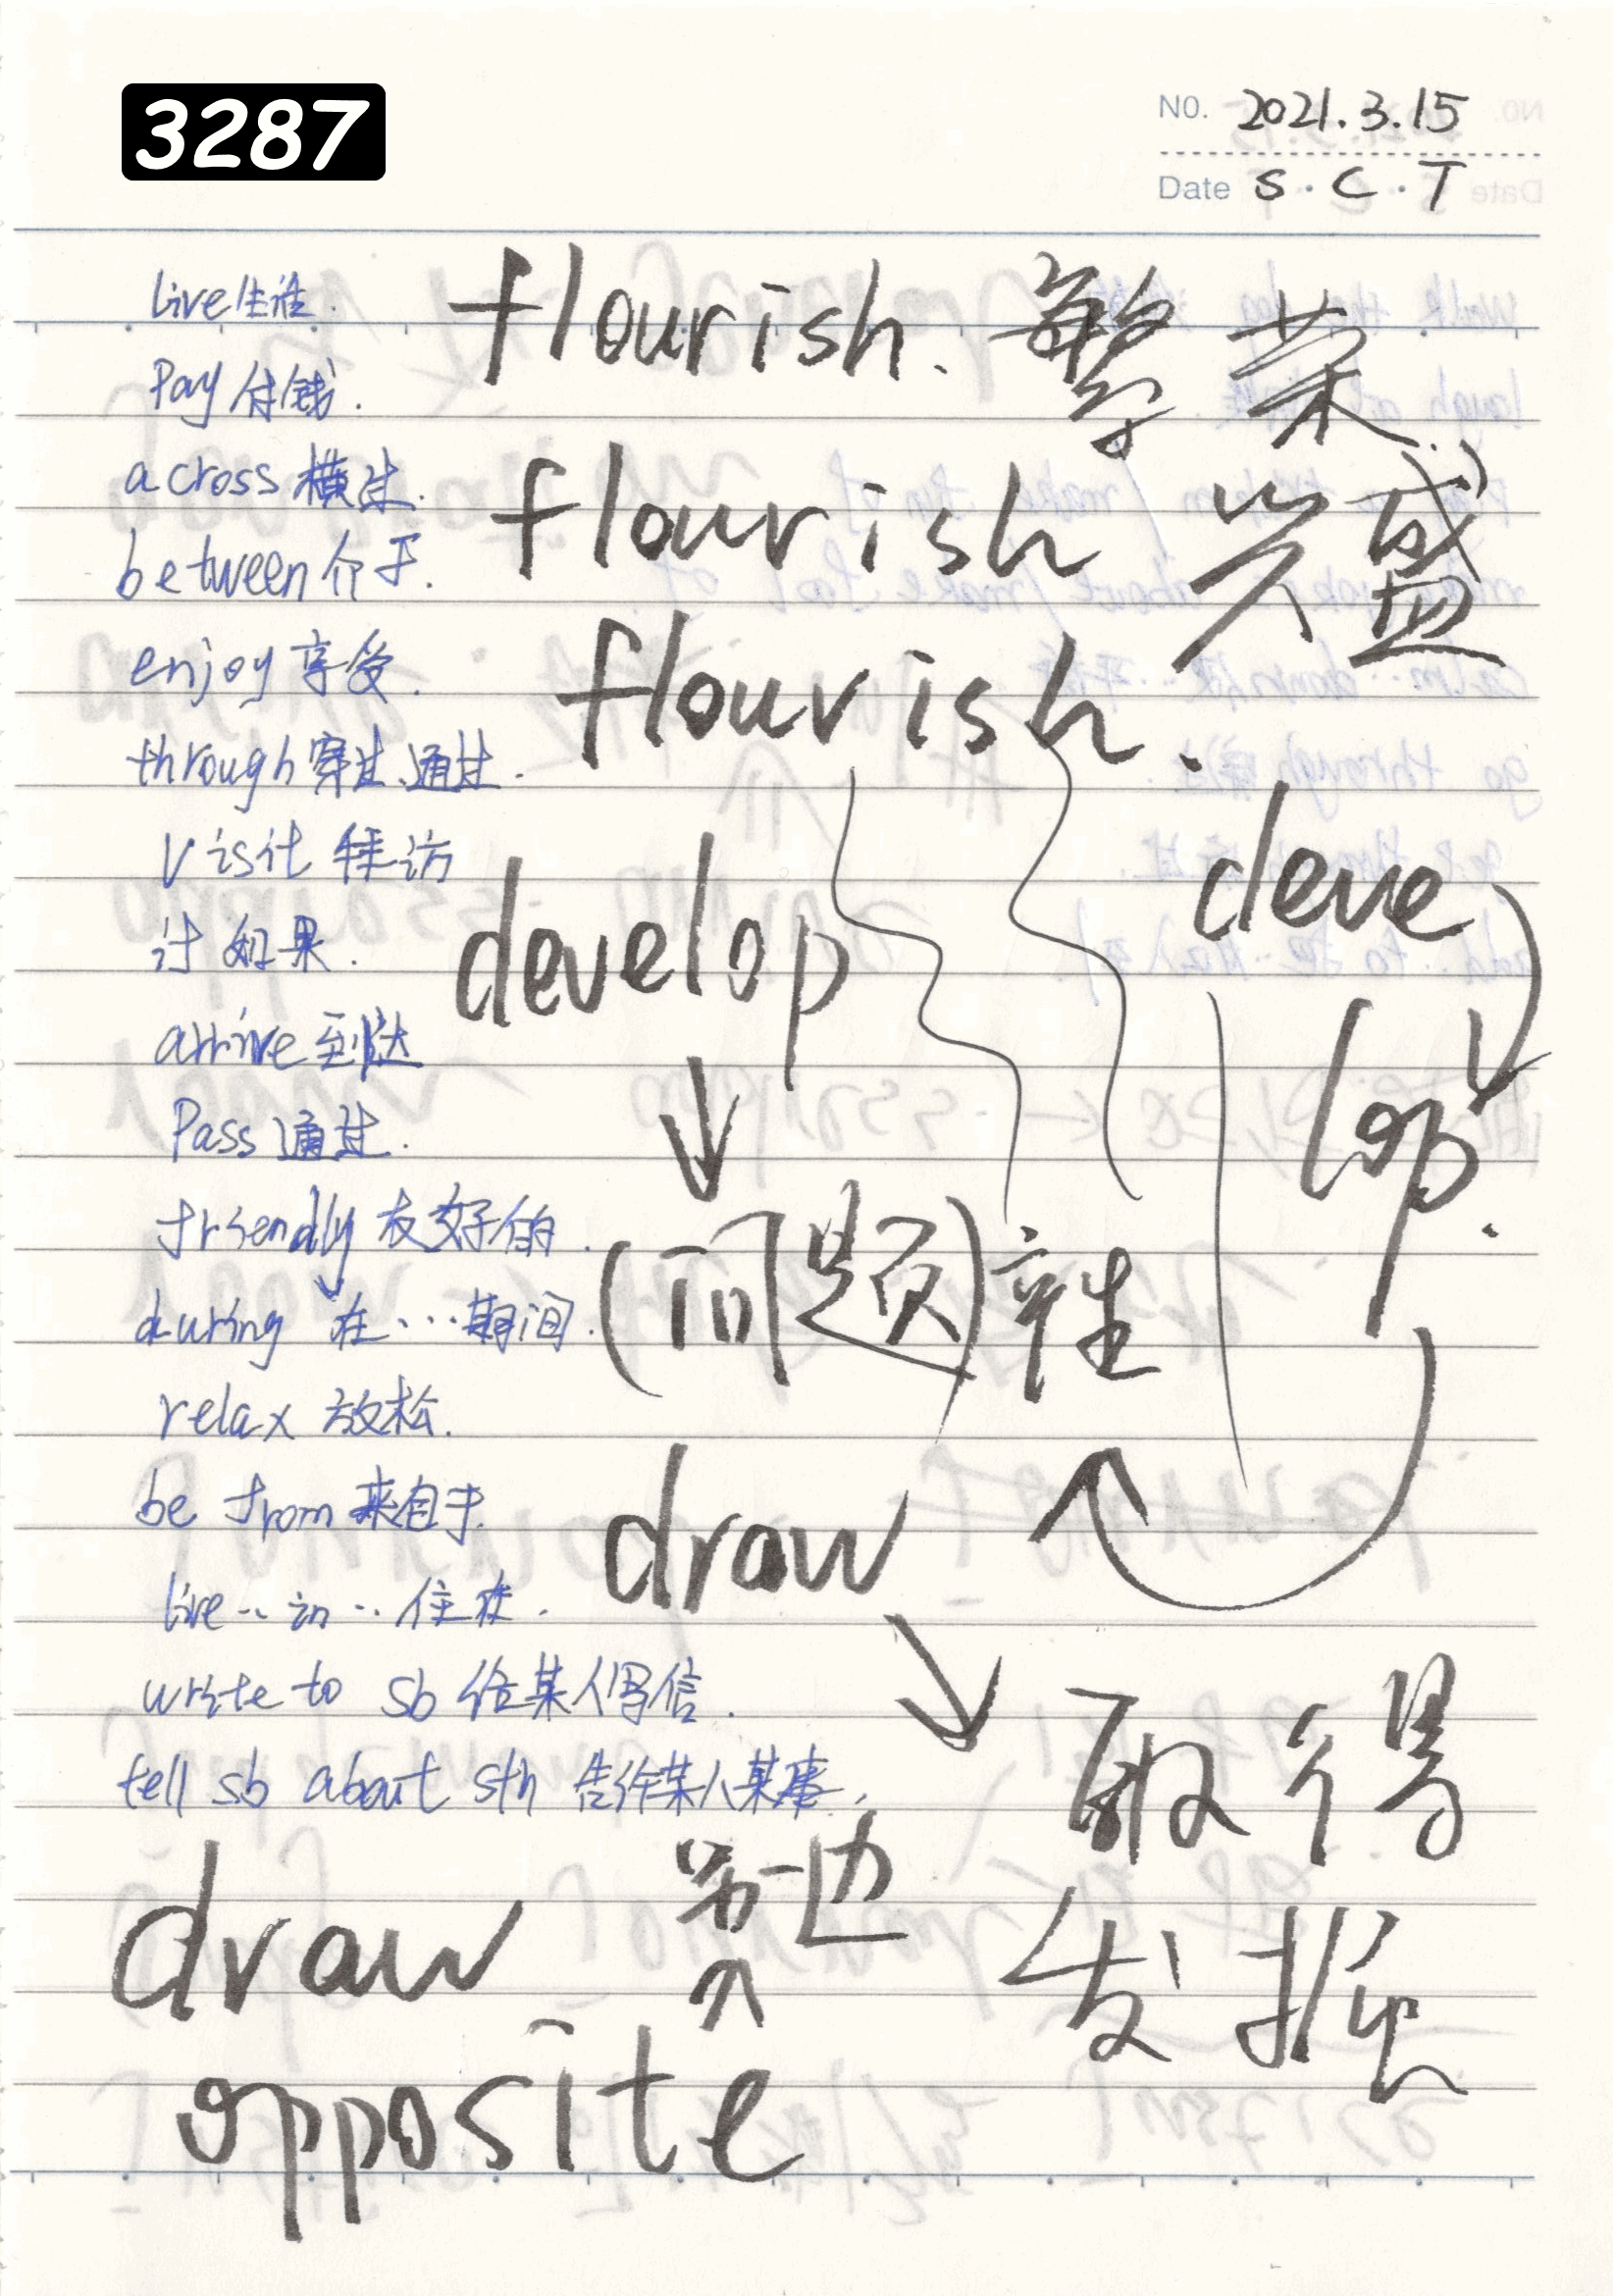 3287
NO. 2021.3.15
Date S·C·T
live 生活.
Pay 付钱.
across 横过.
between 介于.
enjoy 享受.
through 穿过、通过.
Visit 拜访
if 如果.
arrive 到达
Pass 通过.
friendly 友好的.
during 在···期间.
relax 放松.
be from 来自于.
live ·· in ·· 住在.
write to sb 给某人写信.
tell sb about sth 告诉某人某事.
flourish. 繁荣
flourish 兴盛
flourish.
develop
(问题)产生
deve
lop.
draw
取得
发挥
draw
另一边
opposite